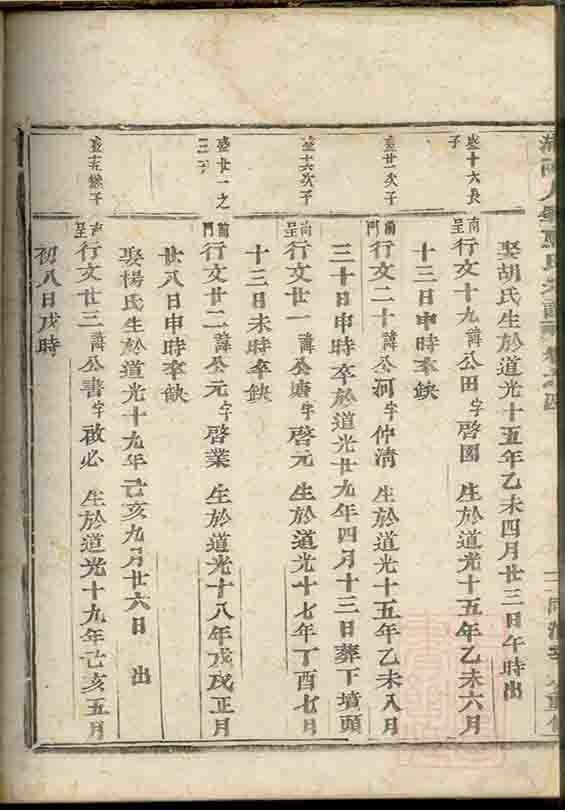 娶胡氏生於道光十五年乙未四月廿三日午時出
盛十六長子
南呈行文十九諱公田字啓國 生於道光十五年乙未六月
十三日申時卒缺
盛廿一次子
前門行文二十諱公河字仲清 生於道光十五年乙未八月
三十日申時卒於道光廿九年四月十三日葬下墳頭
盛十六次子
南呈行文廿一諱公塘字啓元 生於道光十七年丁酉七月
十三日未時卒缺
盛廿一之三子
前門行文廿二諱公元字啓業 生於道光十八年戊戌正月
廿八日申時卒缺
娶楊氏生於道光十九年己亥九月廿六日 出
南呈行文廿三諱公書字啟必 生於道光十九年己亥五月
初八日戌時